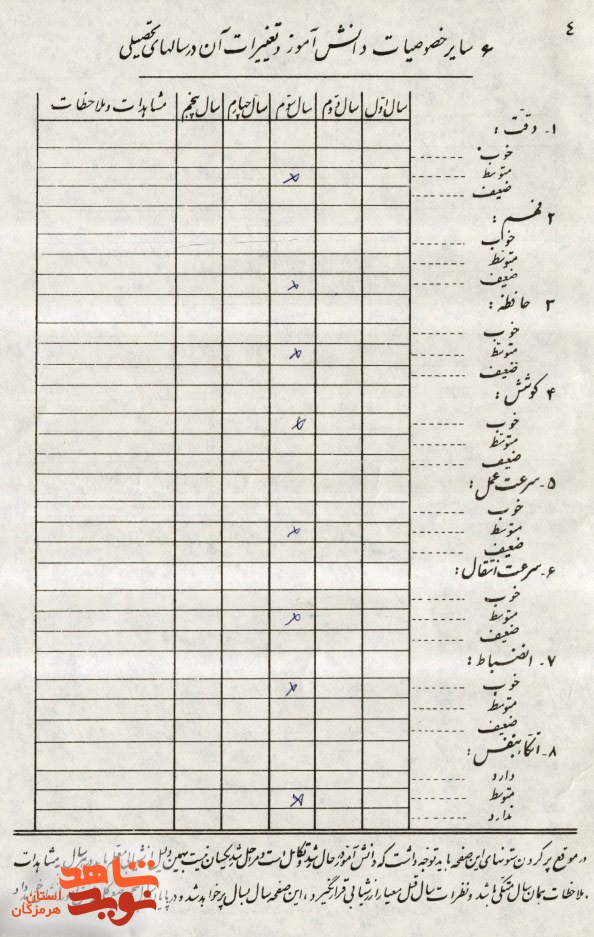 ۴
۶ سایر خصوصیات دانش آموز و تغییرات آن در سالهای تحصیلی
سال اوّل سال دوّم سال سوّم سال چهارم سال پنجم مشاهدات و ملاحظات
۱- دقّت :
خوب
متوسط
ضعیف
۲ فهم :
خوب
متوسط
ضعیف
۳ حافظه :
خوب
متوسط
ضعیف
۴ کوشش :
خوب
متوسط
ضعیف
۵- سرعت عمل :
خوب
متوسط
ضعیف
۶- سرعت انتقال :
خوب
متوسط
ضعیف
۷- انضباط :
خوب
متوسط
ضعیف
۸- اتّکاء بنفس :
دارد
متوسط
ندارد
در موقع پر کردن ستونهای این صفحه باید توجه داشت که دانش آموز در حال رشد و تکامل است و مراحل رشد یکسان نیست بهمین دلیل مشاهدات
ملاحظات همان سال متکی باشد و نظرات سال قبل معیار ارزشیابی قرار نگیرد ، این صفحه سال بسال پر خواهد شد و در پایان
نوید شاهد
استان هرمزگان